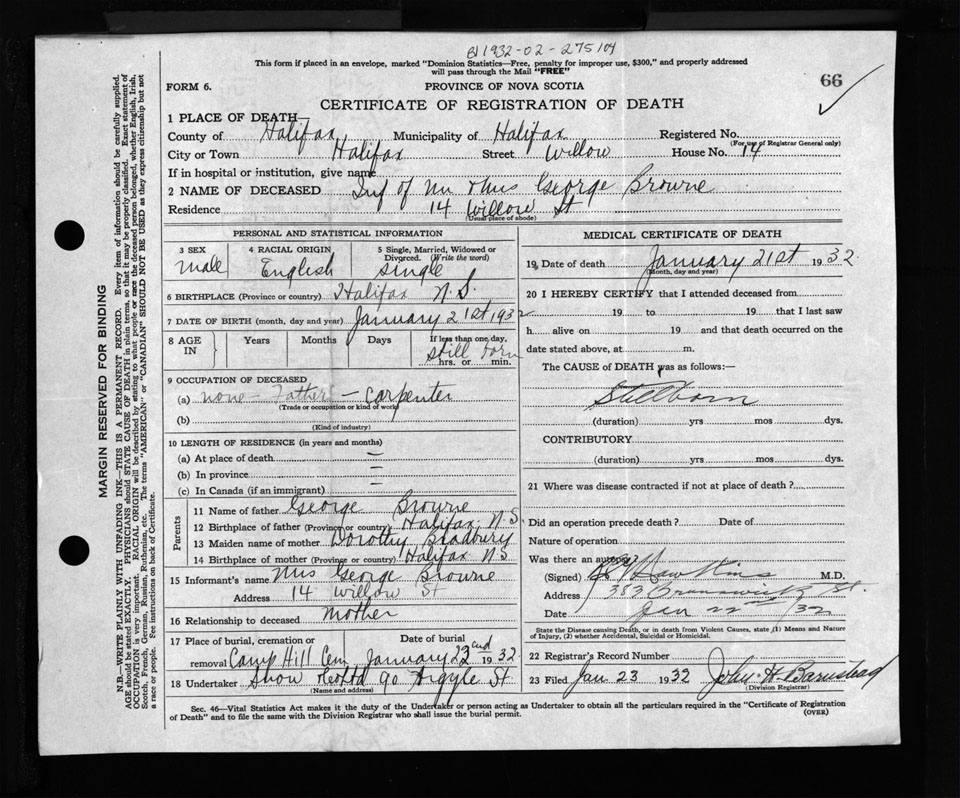 B1932-02-275104
This form if placed in an envelope, marked "Dominion Statistics—Free, penalty for improper use, $300," and properly addressed
will pass through the Mail "FREE"
66
FORM 6.
PROVINCE OF NOVA SCOTIA
CERTIFICATE OF REGISTRATION OF DEATH
1 PLACE OF DEATH—
County of Halifax, Municipality of Halifax Registered No.
(For use of Registrar General only)
City or Town Halifax Street Willow House No. 14
If in hospital or institution, give name
2 NAME OF DECEASED Inf of Mr & Mrs George Browne
Residence 14 Willow St
(Usual place of abode)
PERSONAL AND STATISTICAL INFORMATION
3 SEX 4 RACIAL ORIGIN 5 Single, Married, Widowed or
Divorced. (Write the word)
Male English Single
6 BIRTHPLACE (Province or country) Halifax N.S.
7 DATE OF BIRTH (month, day and year) January 21st 1932
8 AGE IN Years Months Days If less than one day,
still born
hrs. or min.
9 OCCUPATION OF DECEASED
(a) none - Father - Carpenter
(Trade or occupation or kind of work)
(b)
(Kind of industry)
10 LENGTH OF RESIDENCE (in years and months)
(a) At place of death —
(b) In province —
(c) In Canada (if an immigrant) —
Parents
11 Name of father George Browne
12 Birthplace of father (Province or country) Halifax, N.S
13 Maiden name of mother Dorothy Bradbury
14 Birthplace of mother (Province or country) Halifax N.S
15 Informant's name Mrs George Browne
Address 14 Willow St
16 Relationship to deceased Mother
17 Place of burial, cremation or Date of burial
removal Camp Hill Cem January 22nd 1932
18 Undertaker Snow & Co Ltd 90 Argyle St
(Name and address)
MEDICAL CERTIFICATE OF DEATH
19 Date of death January 21st 1932
(Month, day and year)
20 I HEREBY CERTIFY that I attended deceased from
19 to 19 that I last saw
h alive on 19 and that death occurred on the
date stated above, at m.
The CAUSE of DEATH was as follows:—
Stillborn
(duration) yrs mos dys.
CONTRIBUTORY
(duration) yrs mos dys.
21 Where was disease contracted if not at place of death?
Did an operation precede death? Date of
Nature of operation
Was there an autopsy?
(Signed) M.D.
Address 383 Brunswick St.
Date Jan 22nd /32
State the Disease causing Death, or in death from Violent Causes, state (1) Means and Nature
of Injury, (2) whether Accidental, Suicidal or Homicidal.
22 Registrar's Record Number
23 Filed Jan 23 1932 John H. Barnstead
(Division Registrar)
Sec. 46—Vital Statistics Act makes it the duty of the Undertaker or person acting as Undertaker to obtain all the particulars required in the "Certificate of Registration
of Death" and to file the same with the Division Registrar who shall issue the burial permit.
(OVER)
MARGIN RESERVED FOR BINDING
N.B.—WRITE PLAINLY WITH UNFADING INK—THIS IS A PERMANENT RECORD. Every item of information should be carefully supplied.
AGE should be stated EXACTLY. PHYSICIANS should STATE CAUSE OF DEATH in plain terms, so that it may be properly classified. Exact statement of
OCCUPATION is very important. RACIAL ORIGIN will be described by stating to what people or race the deceased person belonged, whether English, Irish,
Scotch, French, German, Russian, Ruthenian, etc. The terms "AMERICAN" or "CANADIAN" SHOULD NOT BE USED as they express citizenship but not
a race or people. See instructions on back of Certificate.